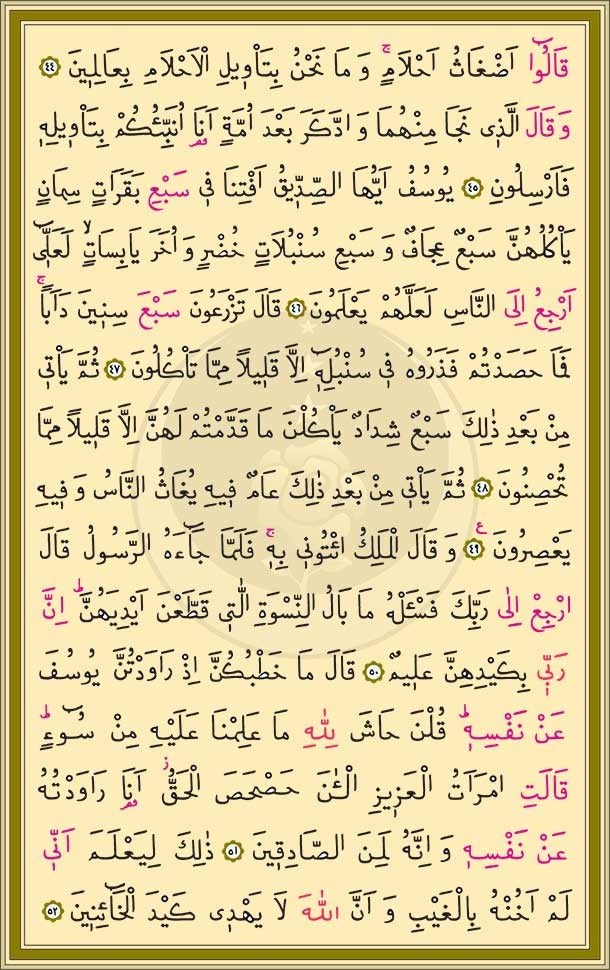 قَالُٓوا اَضْغَاثُ اَحْلَامٍۚ وَ مَا نَحْنُ بِتَاْو۪يلِ الْاَحْلَامِ بِعَالِم۪ينَ ﴿٤٤﴾
وَ قَالَ الَّذ۪ي نَجَا مِنْهُمَا وَ ادَّكَرَ بَعْدَ اُمَّةٍ اَنَا۬ اُنَبِّئُكُمْ بِتَاْو۪يلِه۪
فَاَرْسِلُونِ ﴿٤٥﴾ يُوسُفُ اَيُّهَا الصِّدّ۪يقُ اَفْتِنَا ف۪ي سَبْعِ بَقَرَاتٍ سِمَانٍ
يَاْكُلُهُنَّ سَبْعٌ عِجَافٌ وَ سَبْعِ سُنْبُلَاتٍ خُضْرٍ وَ اُخَرَ يَابِسَاتٍۙ لَعَلّ۪ٓي
اَرْجِعُ اِلَى النَّاسِ لَعَلَّهُمْ يَعْلَمُونَ ﴿٤٦﴾ قَالَ تَزْرَعُونَ سَبْعَ سِن۪ينَ دَاَبًاۚ
فَمَا حَصَدْتُمْ فَذَرُوهُ ف۪ي سُنْبُلِه۪ٓ اِلَّا قَل۪يلاً مِمَّا تَاْكُلُونَ ﴿٤٧﴾ ثُمَّ يَاْت۪ي
مِنْ بَعْدِ ذٰلِكَ سَبْعٌ شِدَادٌ يَاْكُلْنَ مَا قَدَّمْتُمْ لَهُنَّ اِلَّا قَل۪يلاً مِمَّا
تُحْصِنُونَ ﴿٤٨﴾ ثُمَّ يَاْت۪ي مِنْ بَعْدِ ذٰلِكَ عَامٌ ف۪يهِ يُغَاثُ النَّاسُ وَ ف۪يهِ
يَعْصِرُونَ ﴿٤٩﴾ ع وَ قَالَ الْمَلِكُ ائْتُون۪ي بِه۪ۚ فَلَمَّا جَٓاءَهُ الرَّسُولُ قَالَ
ارْجِعْ اِلٰى رَبِّكَ فَسْـَٔلْهُ مَا بَالُ النِّسْوَةِ الّٰت۪ي قَطَّعْنَ اَيْدِيَهُنَّۜ اِنَّ
رَبّ۪ي بِكَيْدِهِنَّ عَل۪يمٌ ﴿٥٠﴾ قَالَ مَا خَطْبُكُنَّ اِذْ رَاوَدْتُنَّ يُوسُفَ
عَنْ نَفْسِه۪ۜ قُلْنَ حَاشَ لِلّٰهِ مَا عَلِمْنَا عَلَيْهِ مِنْ سُٓوءٍۜ
قَالَتِ امْرَاَتُ الْعَز۪يزِ الْـٰٔنَ حَصْحَصَ الْحَقُّۘ اَنَا۬ رَاوَدْتُهُ
عَنْ نَفْسِه۪ وَ اِنَّهُ لَمِنَ الصَّادِق۪ينَ ﴿٥١﴾ ذٰلِكَ لِيَعْلَمَ اَنّ۪ي
لَمْ اَخُنْهُ بِالْغَيْبِ وَ اَنَّ اللّٰهَ لَا يَهْد۪ي كَيْدَ الْخَٓائِن۪ينَ ﴿٥٢﴾